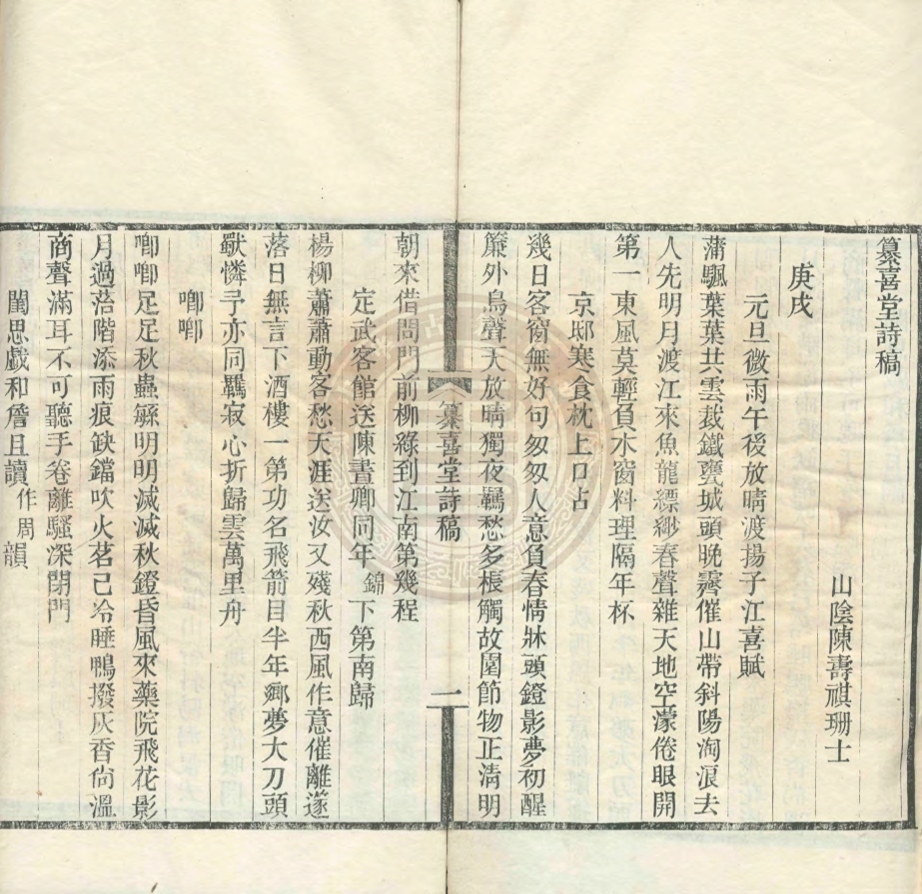 纂喜堂詩稿
山陰陳壽祺珊士
庚戌
元旦微雨午後放晴渡揚子江喜賦
蒲颿葉葉共雲裁鐵甕城頭晚霽催山帶斜陽淘浪去
人先明月渡江來魚龍縹緲春聲雜天地空濛倦眼開
第一東風莫輕負水窗料理隔年杯
京邸寒食枕上口占
幾日客窗無好句匆匆人意負春情牀頭鐙影夢初醒
簾外鳥聲天放晴獨夜羈愁多棖觸故園節物正清明
纂喜堂詩稿
一
朝來借問門前柳綠到江南第幾程
定武客館送陳晝卿同年錦下第南歸
楊柳蕭蕭動客愁天涯送汝又殘秋西風作意催離遂
落日無言下酒樓一第功名飛箭目半年鄉夢大刀頭
獻憐予亦同羈寂心折歸雲萬里舟
喞喞
喞喞足足秋蟲繇明明滅滅秋鐙昏風來藥院飛花影
月過菭階添雨痕鈌鐺吹火茗已冷睡鴨撥灰香尙溫
商聲滿耳不可聽手卷離騷深閉門
閨思戲和詹且讀作周韻